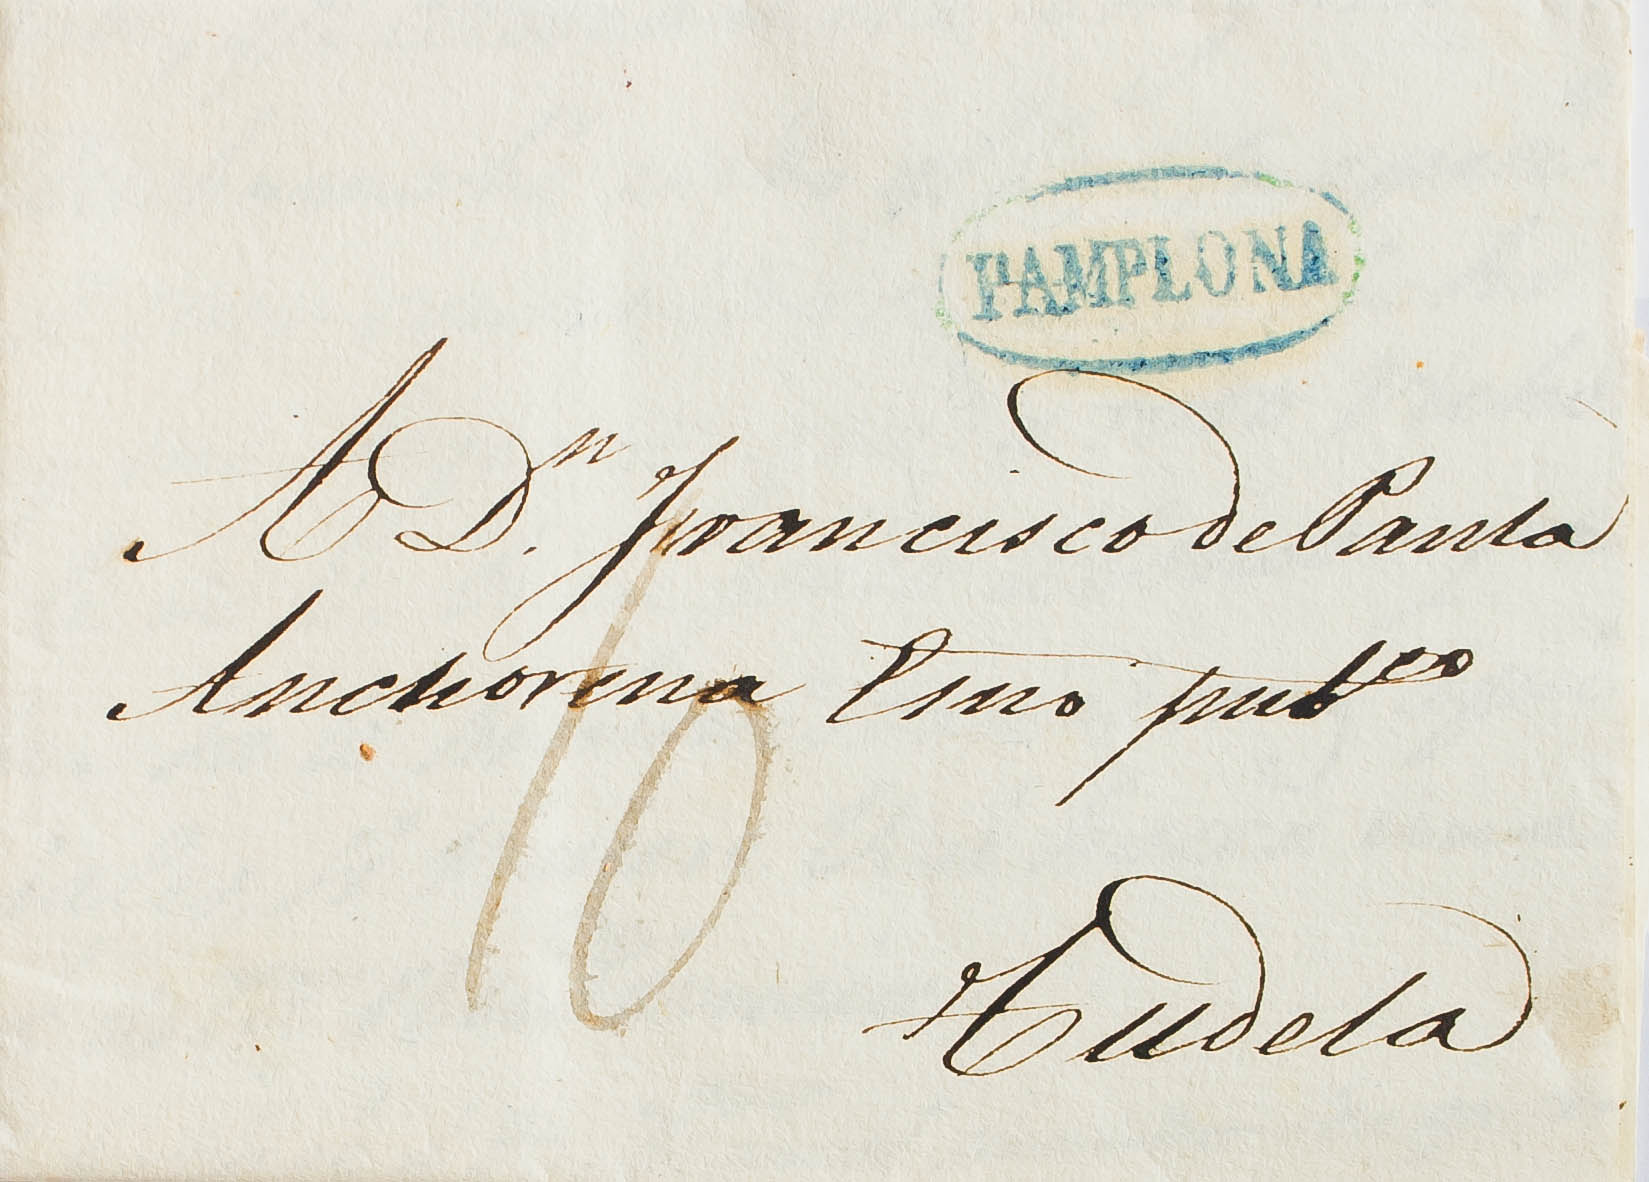 PAMPLONA
A Dn. Francisco de Paula
Anchorena Esno pubco
16
Tudela